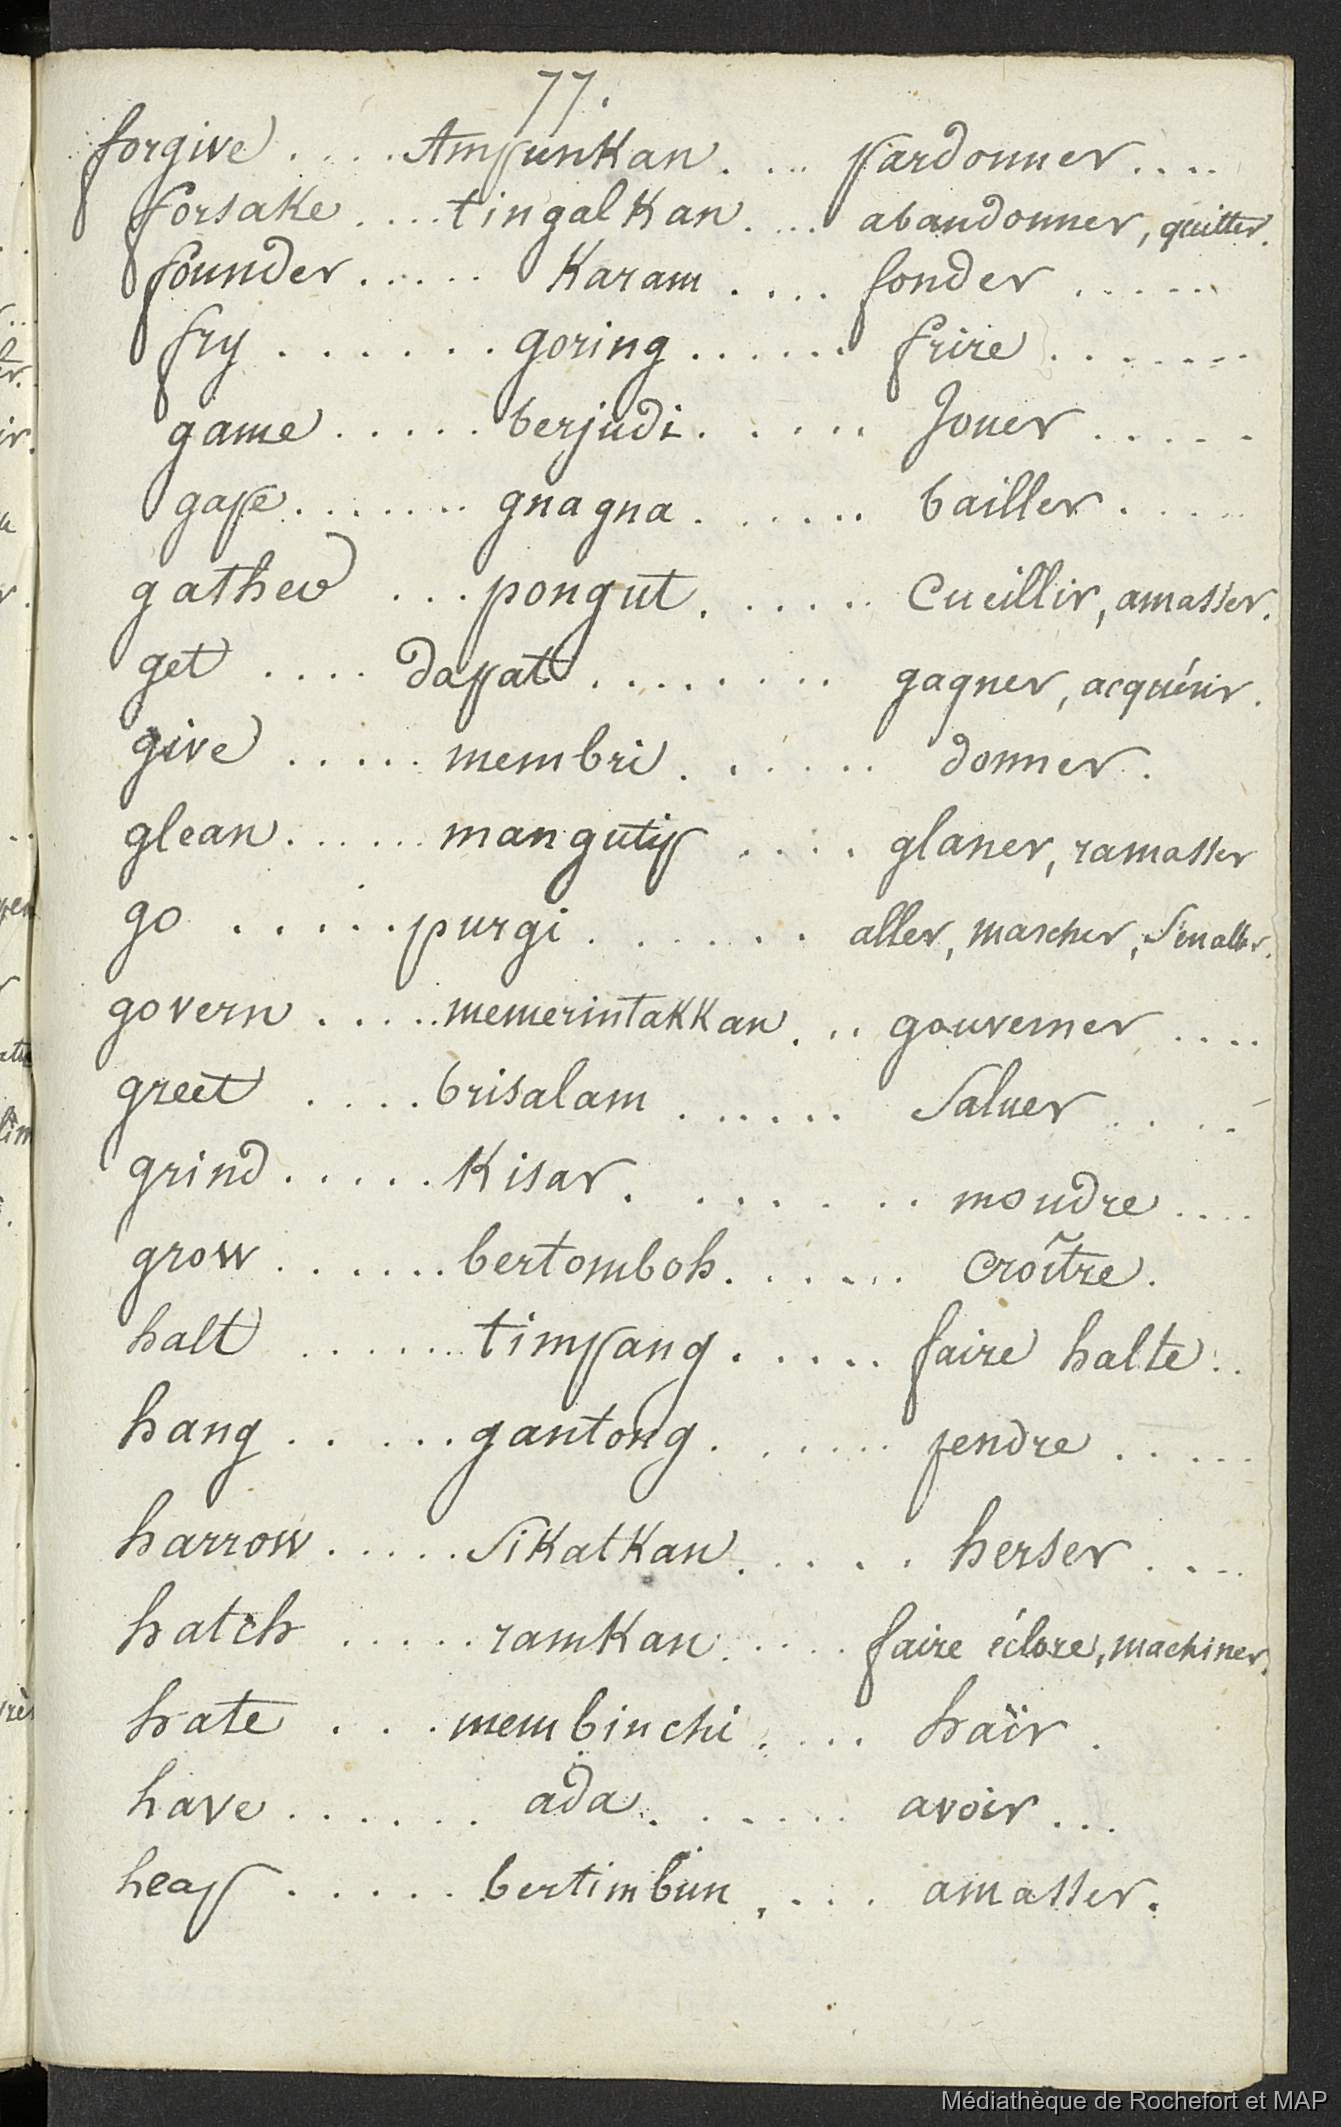 77.
forgive .... Ampunkan .... pardonner ....
forsake .... tingalkan .... abandonner, quitter.
founder ..... karam .... fonder .....
fry ...... goring ...... frire .......
game ..... berjudi ..... Jouer .....
gape ....... gnagna ...... bailler .....
gather ... pongut ...... Cueillir, amasser.
get .... dapat ........ gagner, acquérir.
give ..... membri ...... donner.
glean ...... mangutip .... glaner, ramasser
go ..... purgi ...... aller, marcher, S'en aller.
govern ..... memerintakkan ... gouverner ....
greet .... brisalam ...... Saluer ....
grind ..... Kisar ....... moudre ....
grow ...... bertomboh ...... croître.
halt ...... timpang ..... faire halte ..
hang ..... gantong ...... pendre .....
harrow ..... Sikatkan ..... herser ....
hatch ..... ramkan .... faire éclore, machiner.
hate ... membinchi .... haïr.
have ...... ada ...... avoir ...
heap ..... bertimbun .... amasser.
Médiathèque de Rochefort et MAP